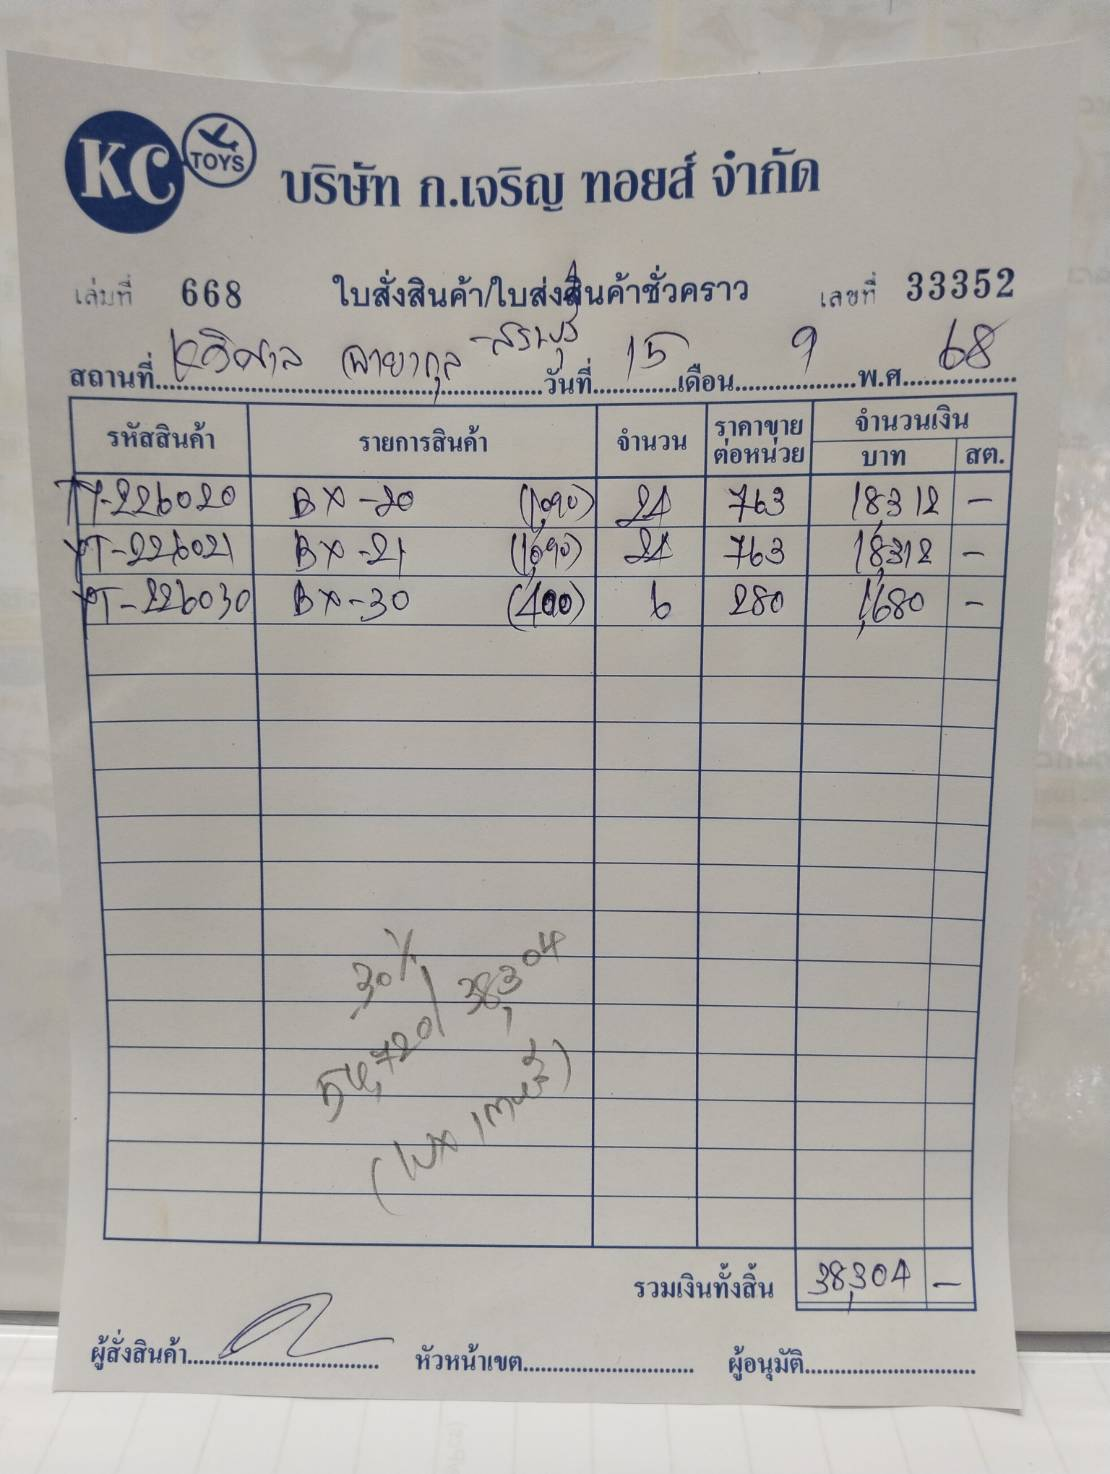 KC TOYS
บริษัท ก.เจริญ ทอยส์ จำกัด
เล่มที่ 668 ใบสั่งสินค้า/ใบส่งสินค้าชั่วคราว เลขที่ 33352
สถานที่ -สระบุรี วันที่ 15 เดือน 9 พ.ศ. 68
รหัสสินค้า รายการสินค้า จำนวน ราคาขายต่อหน่วย จำนวนเงิน
บาท สต.
-226020 BX-20 (1,090) 24 763 18,312 -
YT-226021 BX-21 (1,090) 24 763 18,312 -
YT-226030 BX-30 (400) 6 280 1,680 -
30%
54,720 / 38,304
รวมเงินทั้งสิ้น 38,304 -
ผู้สั่งสินค้า หัวหน้าเขต ผู้อนุมัติ